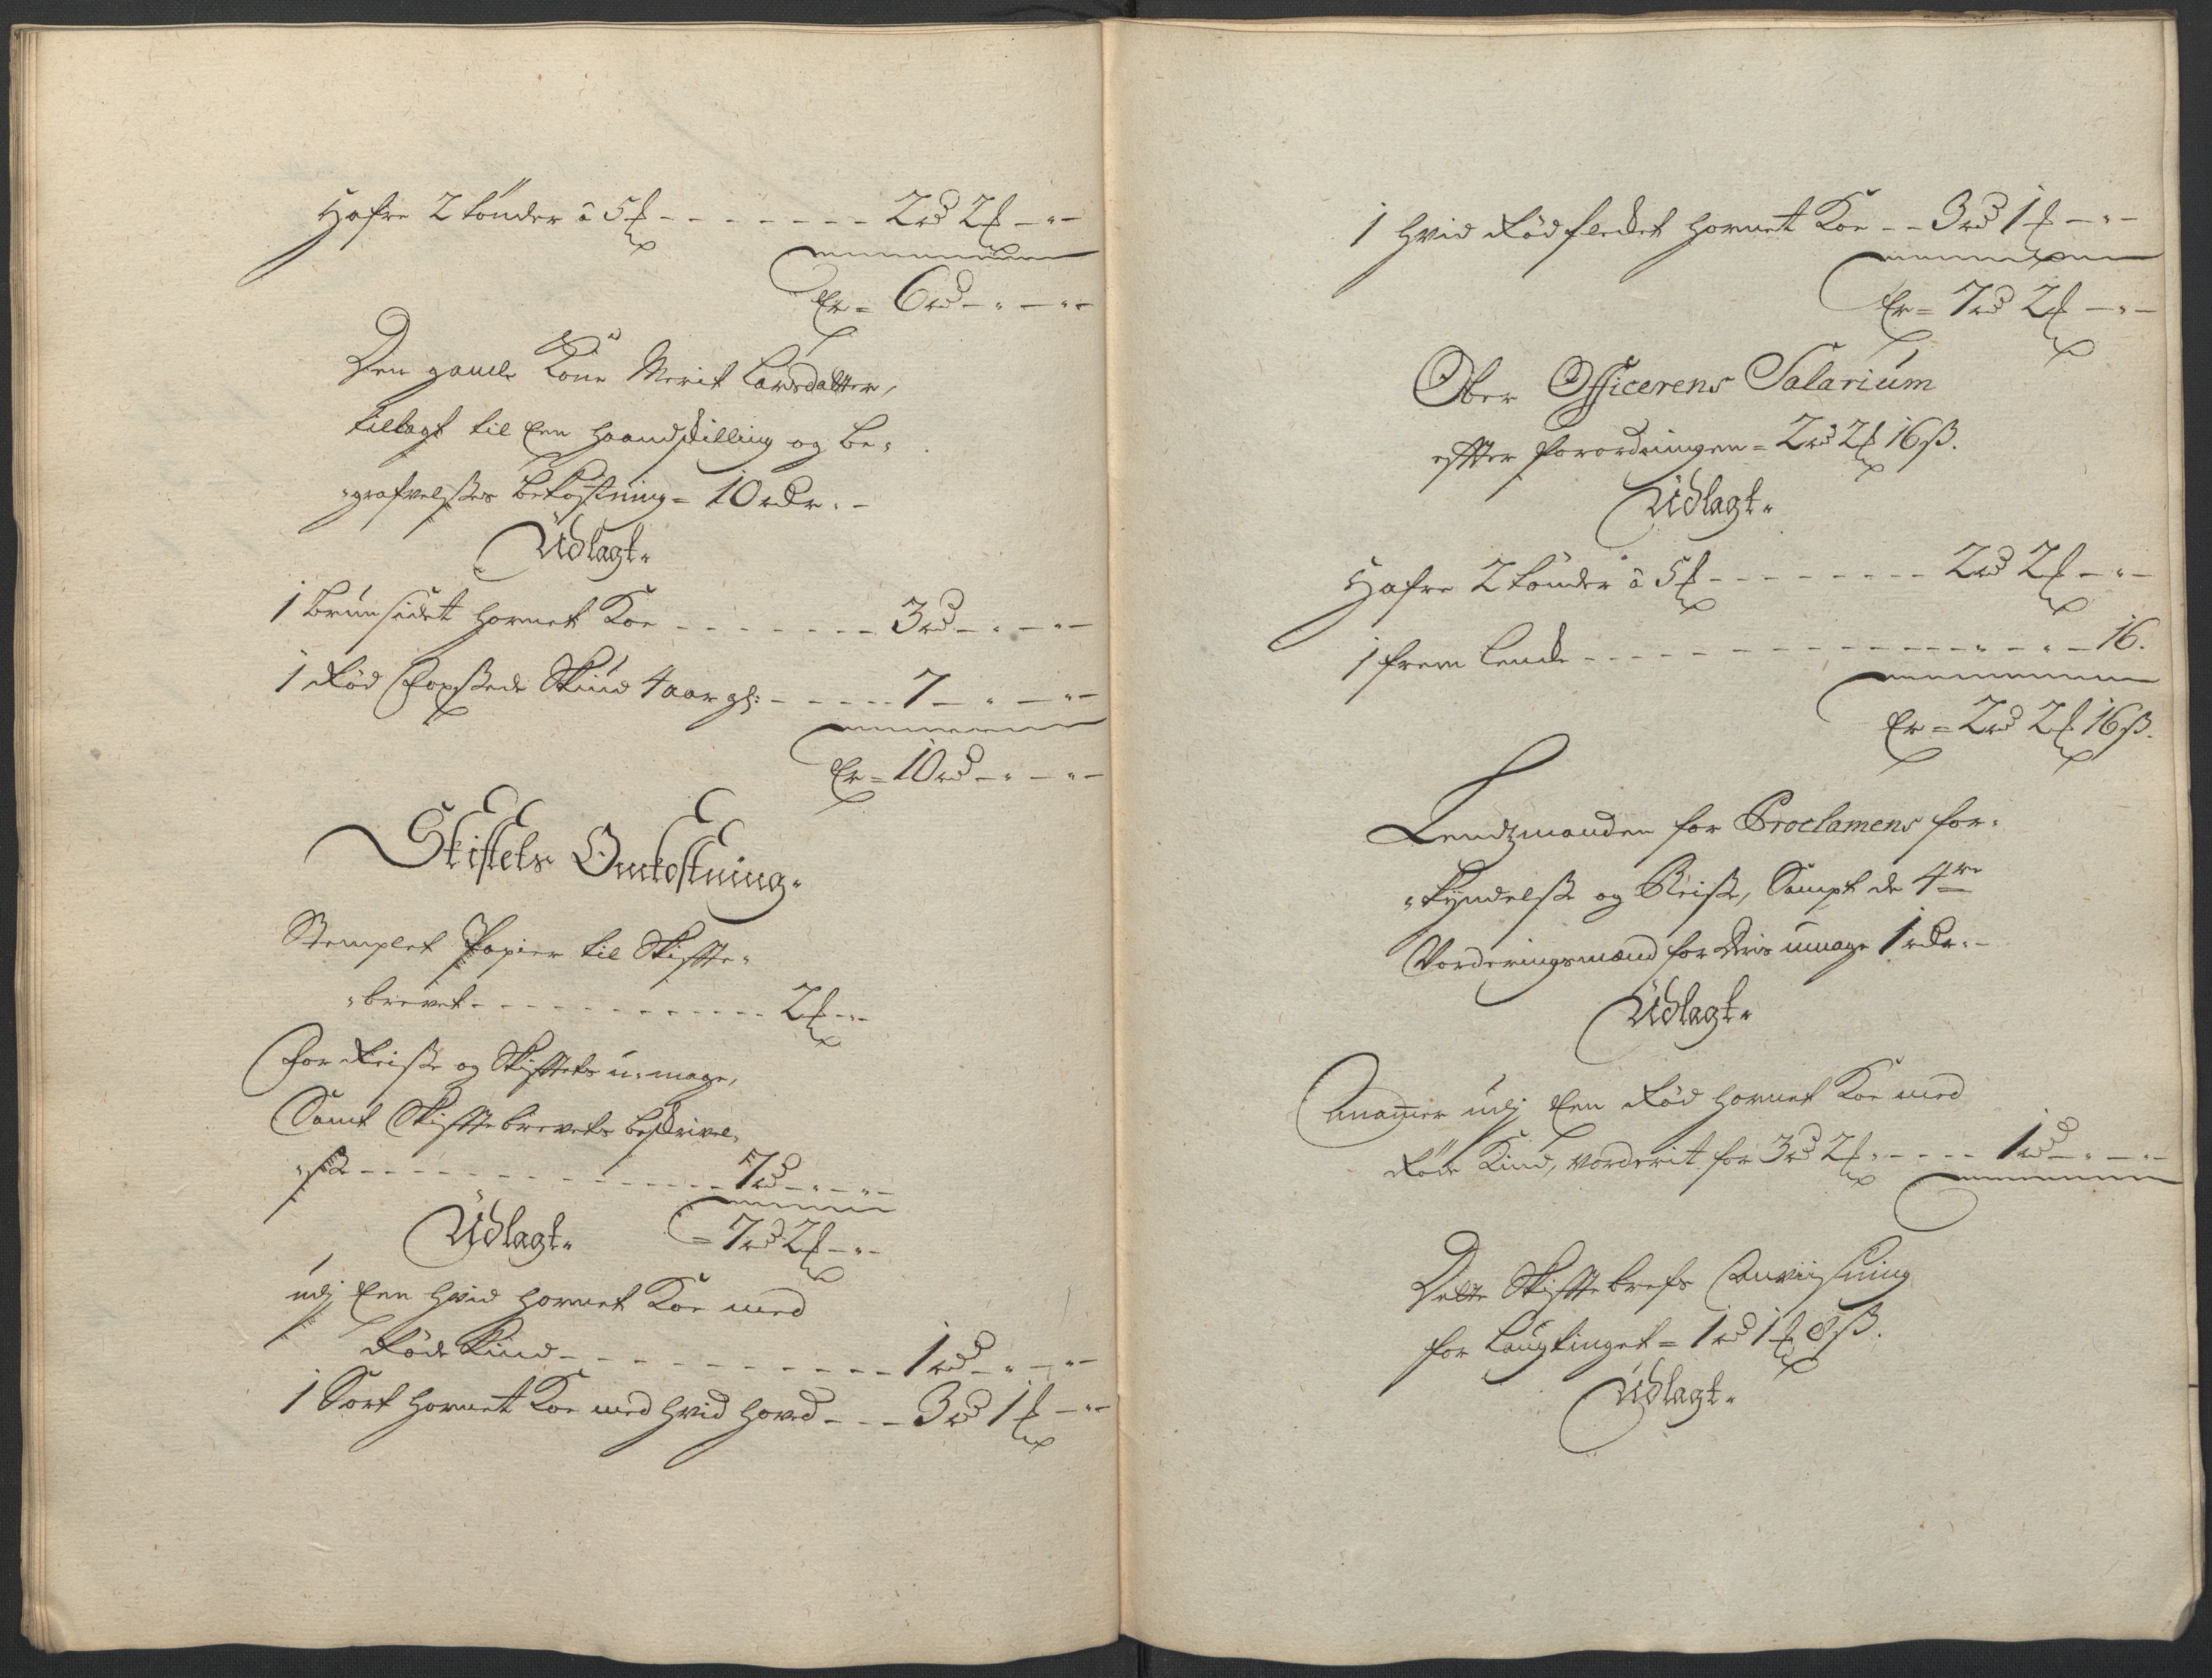 Hafre 2 tönder â 5 ℔ - - - - - - - - 2 rd 2 ℔ - " -
Er = 6 rd - " - " -
Den gamle Kone Marit Larsdatter,
tillagt til Een haandskilling og be-
grafvelsses bekostning = 10 rdr. -
Udlagt.
1 brunsidet hornet Koe - - - - - - - 3 rd - " - " -
1 Rød Hopssede Skind 4 aar gl: - - - - - 7 - " - " -
Er = 10 rd - " - " -
Skiftets Omkostning.
Stemplet Papier til Skiffte-
brevet - - - - - - - - - - - - 2 ℔ - " -
For Reisse og Skifftets u-mage,
Samt Skifftebrevets beskrivel-
sse - - - - - - - - - - - - - - 7 rd - " - " -
Udlagt. = 7 rd 2 ℔ - " -
udj Een hvid hornet Koe med
Røde Kind - - - - - - - - - - 1 rd - " - " -
1 Sort hornet Koe med hvid hoved - - - 3 rd 1 ℔ - " -
1 hvid Rødflecket hornet Koe - - 3 rd 1 ℔ - " -
Er = 7 rd 2 ℔ - " -
Ober Officerens Salarium
effter forordningen = 2 rd 2 ℔ 16 ß.
Udlagt.
Hafre 2 tönder â 5 ℔ - - - - - - - - 2 rd 2 ℔ - " -
1 - - - - - - - - - - - - - - " - " - 16.
Er = 2 rd 2 ℔ 16 ß.
Lendzmanden for Proclamens for-
kyndelsse og Reisse, Sampt de 4re
Vorderingsmænd for deris umage 1 rdr. -
Udlagt.
Anammer udj Een Rød hornet Koe med
Røde Kind, vorderit for 3 rd 2 ℔ - - - - 1 rd - " - " -
Dette Skifftebrefs Anviissning
for Laugtinget = 1 rd 1 ℔ 8 ß.
Udlagt.